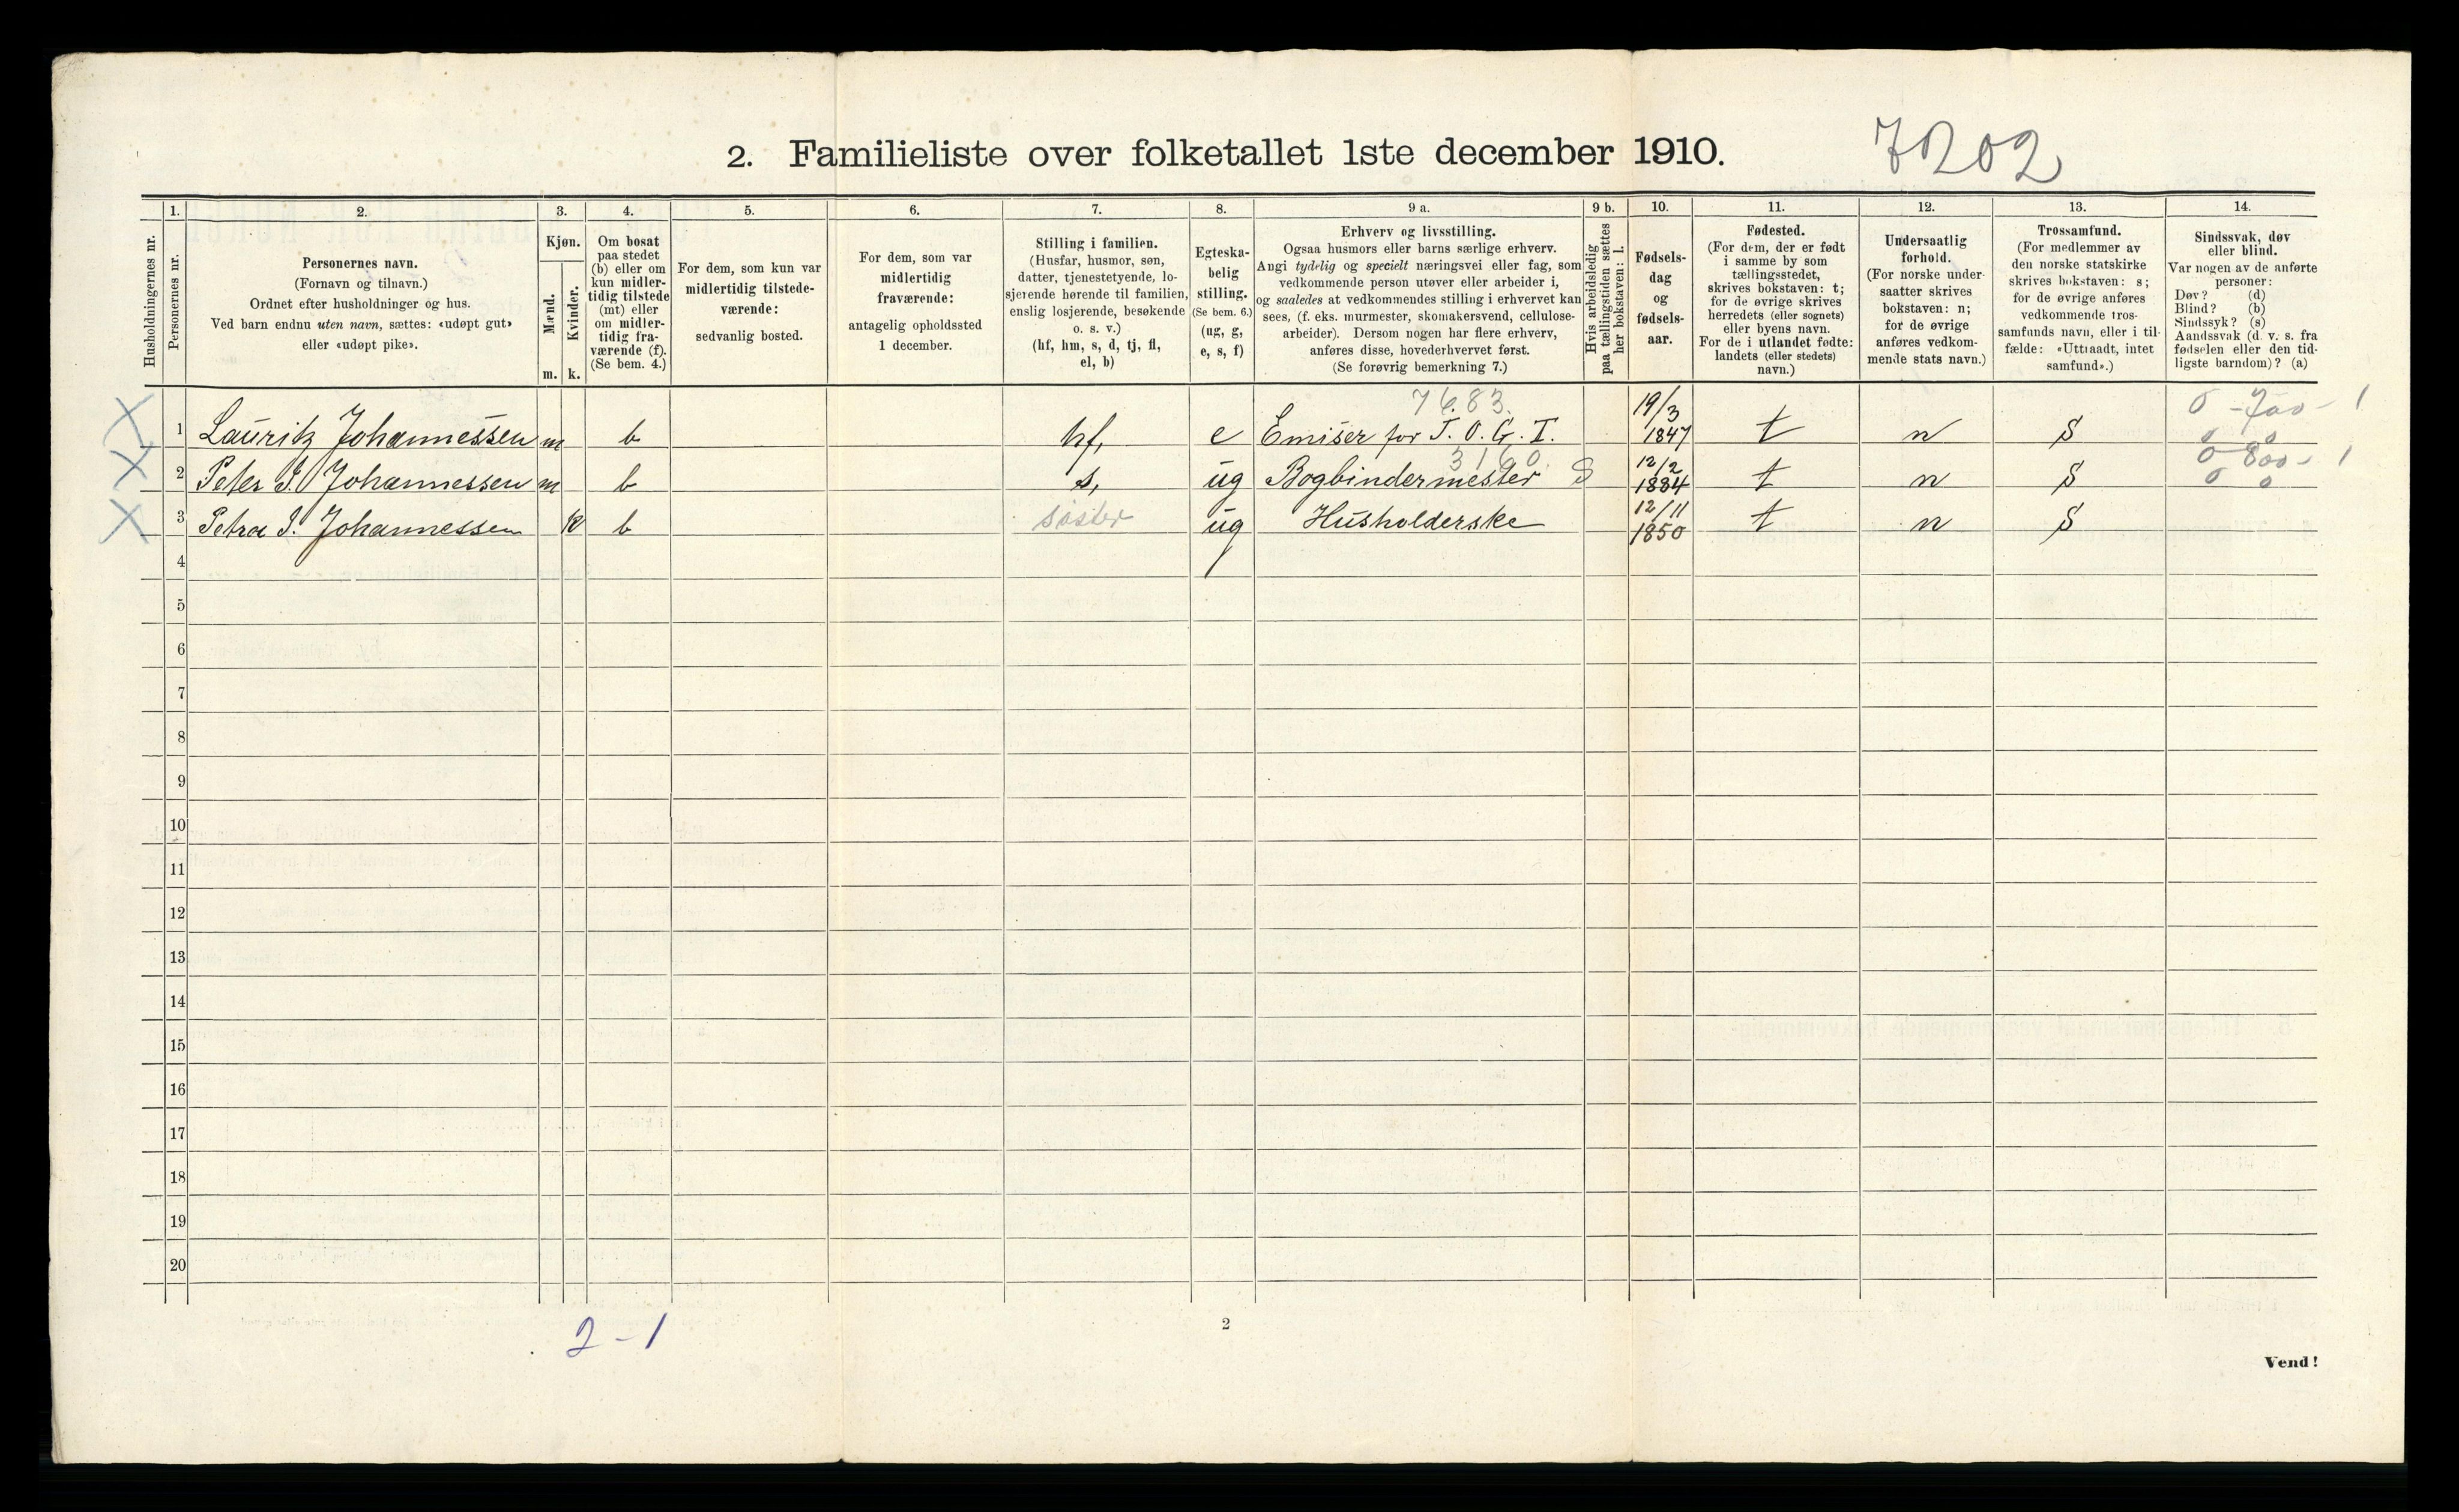 2. Familieliste over folketallet 1ste december 1910.
7202
Husholdningernes nr.
1.
Personernes nr.
2.
Personernes navn.
(Fornavn og tilnavn.)
Ordnet efter husholdninger og hus.
Ved barn endnu uten navn, sættes: «udøpt gut»
eller «udøpt pike».
3.
Kjøn.
Mænd.
Kvinder.
m. k.
4.
Om bosat
paa stedet
(b) eller om
kun midler-
tidig tilstede
(mt) eller
om midler-
tidig fra-
værende (f).
(Se bem. 4.)
5.
For dem, som kun var
midlertidig tilstede-
værende:
sedvanlig bosted.
6.
For dem, som var
midlertidig
fraværende:
antagelig opholdssted
1 december.
7.
Stilling i familien.
(Husfar, husmor, søn,
datter, tjenestetyende, lo-
sjerende hørende til familien,
enslig losjerende, besøkende
o. s. v.)
(hf, hm, s, d, tj, fl,
el, b)
8.
Egteska-
belig
stilling.
(Se bem. 6.)
(ug, g,
e, s, f)
9 a.
Erhverv og livsstilling.
Ogsaa husmors eller barns særlige erhverv.
Angi tydelig og specielt næringsvei eller fag, som
vedkommende person utøver eller arbeider i,
og saaledes at vedkommendes stilling i erhvervet kan
sees, (f. eks. murmester, skomakersvend, cellulose-
arbeider). Dersom nogen har flere erhverv,
anføres disse, hovederhvervet først.
(Se forøvrig bemerkning 7.)
9 b.
Hvis arbeidsledig
paa tællingstiden sættes
her bokstaven: l.
10.
Fødsels-
dag
og
fødsels-
aar.
11.
Fødested.
(For dem, der er født
i samme by som
tællingsstedet,
skrives bokstaven: t;
for de øvrige skrives
herredets (eller sognets)
eller byens navn.
For de i utlandet fødte:
landets (eller stedets)
navn.)
12.
Undersaatlig
forhold.
(For norske under-
saatter skrives
bokstaven: n;
for de øvrige
anføres vedkom-
mende stats navn.)
13.
Trossamfund.
(For medlemmer av
den norske statskirke
skrives bokstaven: s;
for de øvrige anføres
vedkommende tros-
samfunds navn, eller i til-
fælde: «Uttraadt, intet
samfund».)
14.
Sindssvak, døv
eller blind.
Var nogen av de anførte
personer:
Døv? (d)
Blind? (b)
Sindssyk? (s)
Aandssvak (d. v. s. fra
fødselen eller den tid-
ligste barndom)? (a)
7683. 0 - 700 - 1
X 1 Lauritz Johannessen m b hf, e Emisær for I. O. G. T. 19/3 1847 t n S 0 0
3160. 0 800 - 1
X 2 Peter I. Johannessen m b s, ug Bogbindermester S 12/2 1884 t n S 0 0
X 3 Petra I. Johannessen k b søster ug Husholderske 12/11 1850 t n S
4
5
6
7
8
9
10
11
12
13
14
15
16
17
18
19
20
2 - 1
2
Vend!